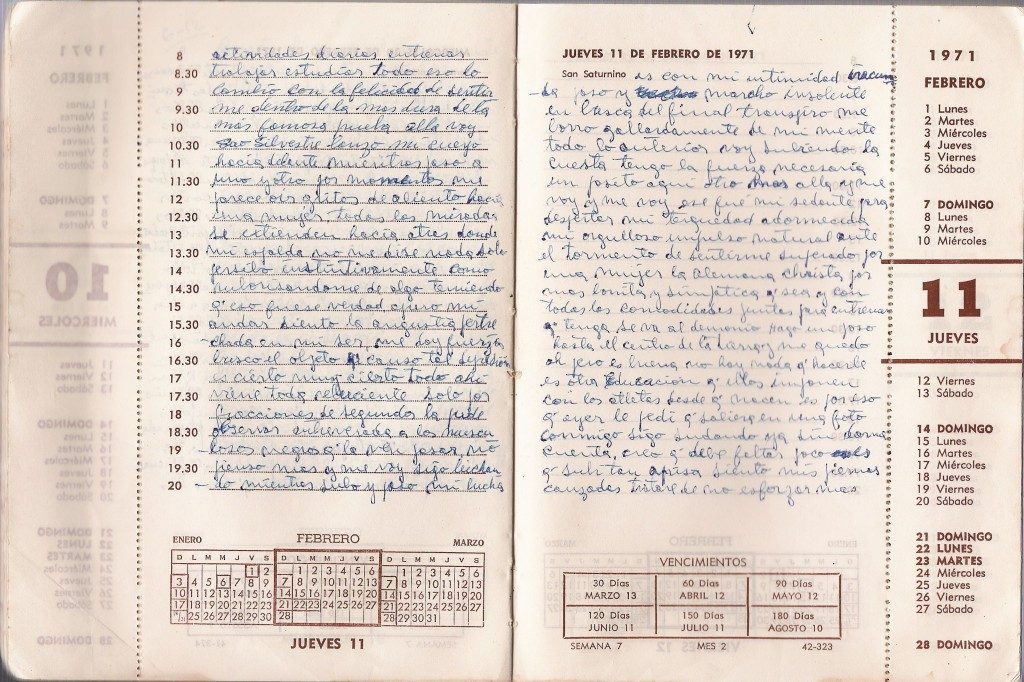 8 actividades diarias entrenar
8.30 trabajar estudiar todo eso lo
9 cambio con la felicidad de sentir
9.30 me dentro de la mas dura de la
10 mas famosa prueba alla voy
10.30 Sao Silvestre lanzo mi cuerpo
11 hacia adelante mientras paso a
11.30 uno y otro por momentos me
12 parece oir gritos de aliento hacia
12.30 una mujer todas las miradas
13 se extienden hacia atras donde
13.30 mi espalda no me dice nada solo
14 instintivamente como
14.30 de algo temiendo
15 q' eso fuese verdad apuro mi
15.30 andar siento la angustia
16 - chada en mi ser, me doy fuerzas
16.30 busco el objeto q' causo tal depresion
17 es cierto muy cierto todo ahi
17.30 viene toda reluciente solo por
18 fracciones de segundos la pude
18.30 observar a los muscu
19 - losos negros q' la ven pasar, no
19.30 pienso mas y me voy sigo luchan
20 - do mientras subo y paso mi lucha
ENERO FEBRERO MARZO
D L M M J V S D L M M J V S D L M M J V S
1 2 1 2 3 4 5 6 1 2 3 4 5 6
3 4 5 6 7 8 9 7 8 9 10 11 12 13 7 8 9 10 11 12 13
10 11 12 13 14 15 16 14 15 16 17 18 19 20 14 15 16 17 18 19 20
17 18 19 20 21 22 23 21 22 23 24 25 26 27 21 22 23 24 25 26 27
24/31 25 26 27 28 29 30 28 28 29 30 31
JUEVES 11
JUEVES 11 DE FEBRERO DE 1971
San Saturnino es con mi intimidad
- da paso y marcho insolente
en busca del final transpiro me
borro gallardamente de mi mente
todo lo anterior voy subiendo la
cuesta tengo la fuerza necesaria
un pasito aqui otro mas alla y me
voy y me voy ese fué mi sedante para
despertar mi terquedad adormecida
mi orgulloso impulso natural ante
el tormento de sentirme superado por
una mujer la Alemana Christa por
mas bonita y simpática q' sea y con
todas las comodidades juntas para entrenar
q' tenga se va al demonio hago un pozo
hasta el centro de la tierra y me quedo
ah pero es buena no hay nada q' hacerle
es otra Educacion q' ellos imponen
con los atletas desde q' nacen es por eso
q' ayer le pedi q' saliera en una foto
conmigo sigo sudando ya sin darme
cuenta, creo q' debe faltar poco
q' subi tan aprisa siento mis piernas
canzadas trataré de no esforzar mas
VENCIMIENTOS
30 Días 60 Días 90 Días
MARZO 13 ABRIL 12 MAYO 12
120 Días 150 Días 180 Días
JUNIO 11 JULIO 11 AGOSTO 10
SEMANA 7 MES 2 42-323
1971
FEBRERO
1 Lunes
2 Martes
3 Miércoles
4 Jueves
5 Viernes
6 Sábado
7 DOMINGO
8 Lunes
9 Martes
10 Miércoles
11
JUEVES
12 Viernes
13 Sábado
14 DOMINGO
15 Lunes
16 Martes
17 Miércoles
18 Jueves
19 Viernes
20 Sábado
21 DOMINGO
22 LUNES
23 MARTES
24 Miércoles
25 Jueves
26 Viernes
27 Sábado
28 DOMINGO